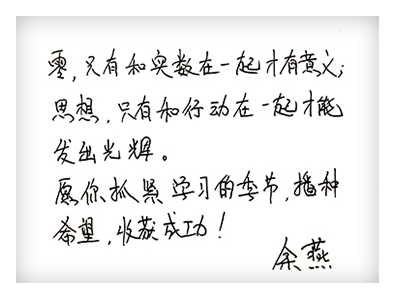 零,只有和实数在一起才有意义;
思想,只有和行动在一起才能
发出光辉。
愿你抓紧学习的季节,播种
希望,收获成功!
余燕